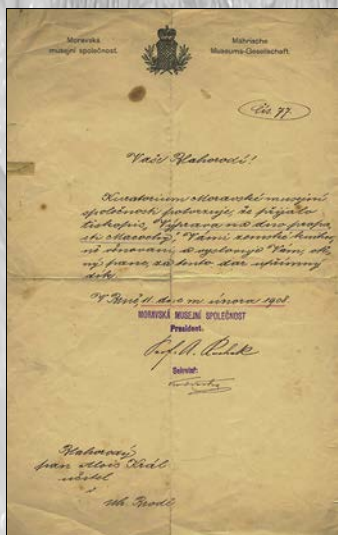 Moravská
musejní společnost.
Mährische
Museums-Gesellschaft.
Čís. 77.
Vaše Blahorodí!
Kuratorium Moravské musejní
společnosti potvrzuje, že přijalo
tiskopis, "Výprava na dno propa
sti Macochy", Vámi zemské knihov
ně věnovaný, a vyslovuje Vám,
pane, za tento dar upřímný
dík.
V Brně, 11. dne m. února 1908.
MORAVSKÁ MUSEJNÍ SPOLEČNOST
President.
Prof. A.
Sekretář:
Blahorodý
pan Alois Král
učitel
v
Uh. Brodě